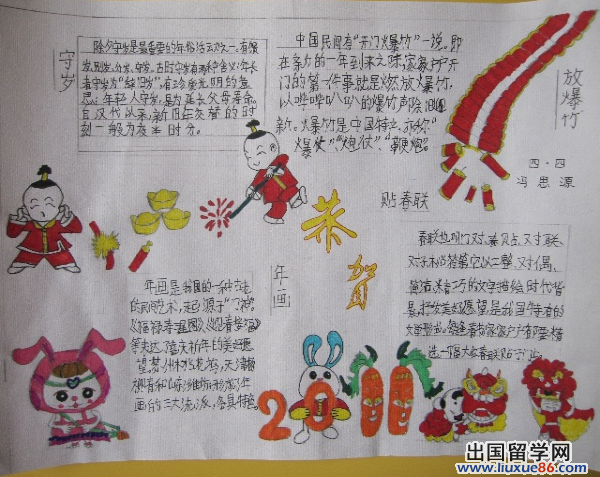 守岁
除夕守岁是最重要的年俗活动之一。有熬
年长
者守岁为“辞旧岁”，有珍爱光阴的意
思。年轻人守岁，是为延长父母寿命。
自汉代以来，新旧年交替的时
刻一般为夜半时分。
中国民间有“开门爆竹”一说。即
在新的一年到来之际，家家户户开
门的第一件事就是燃放爆竹，
以哔哔叭叭的爆竹声除旧迎
新。爆竹是中国特产，亦称“
爆仗”“炮仗”“鞭炮”。
放爆竹
四·四
冯思源
贴春联
恭贺
年画
年画是我国的一种古老
的民间艺术，起源于“门神”。
望。
画的三大流派，各具特色。
春联也叫门对、春贴、对联、
对子
简洁、精巧的文字描绘时代背
景，抒发美好愿望，是我国特有的
文学形式。每逢春节家家户户都要精
选一幅大红春联贴于门上。
2011
出国留学网
www.liuxue86.com